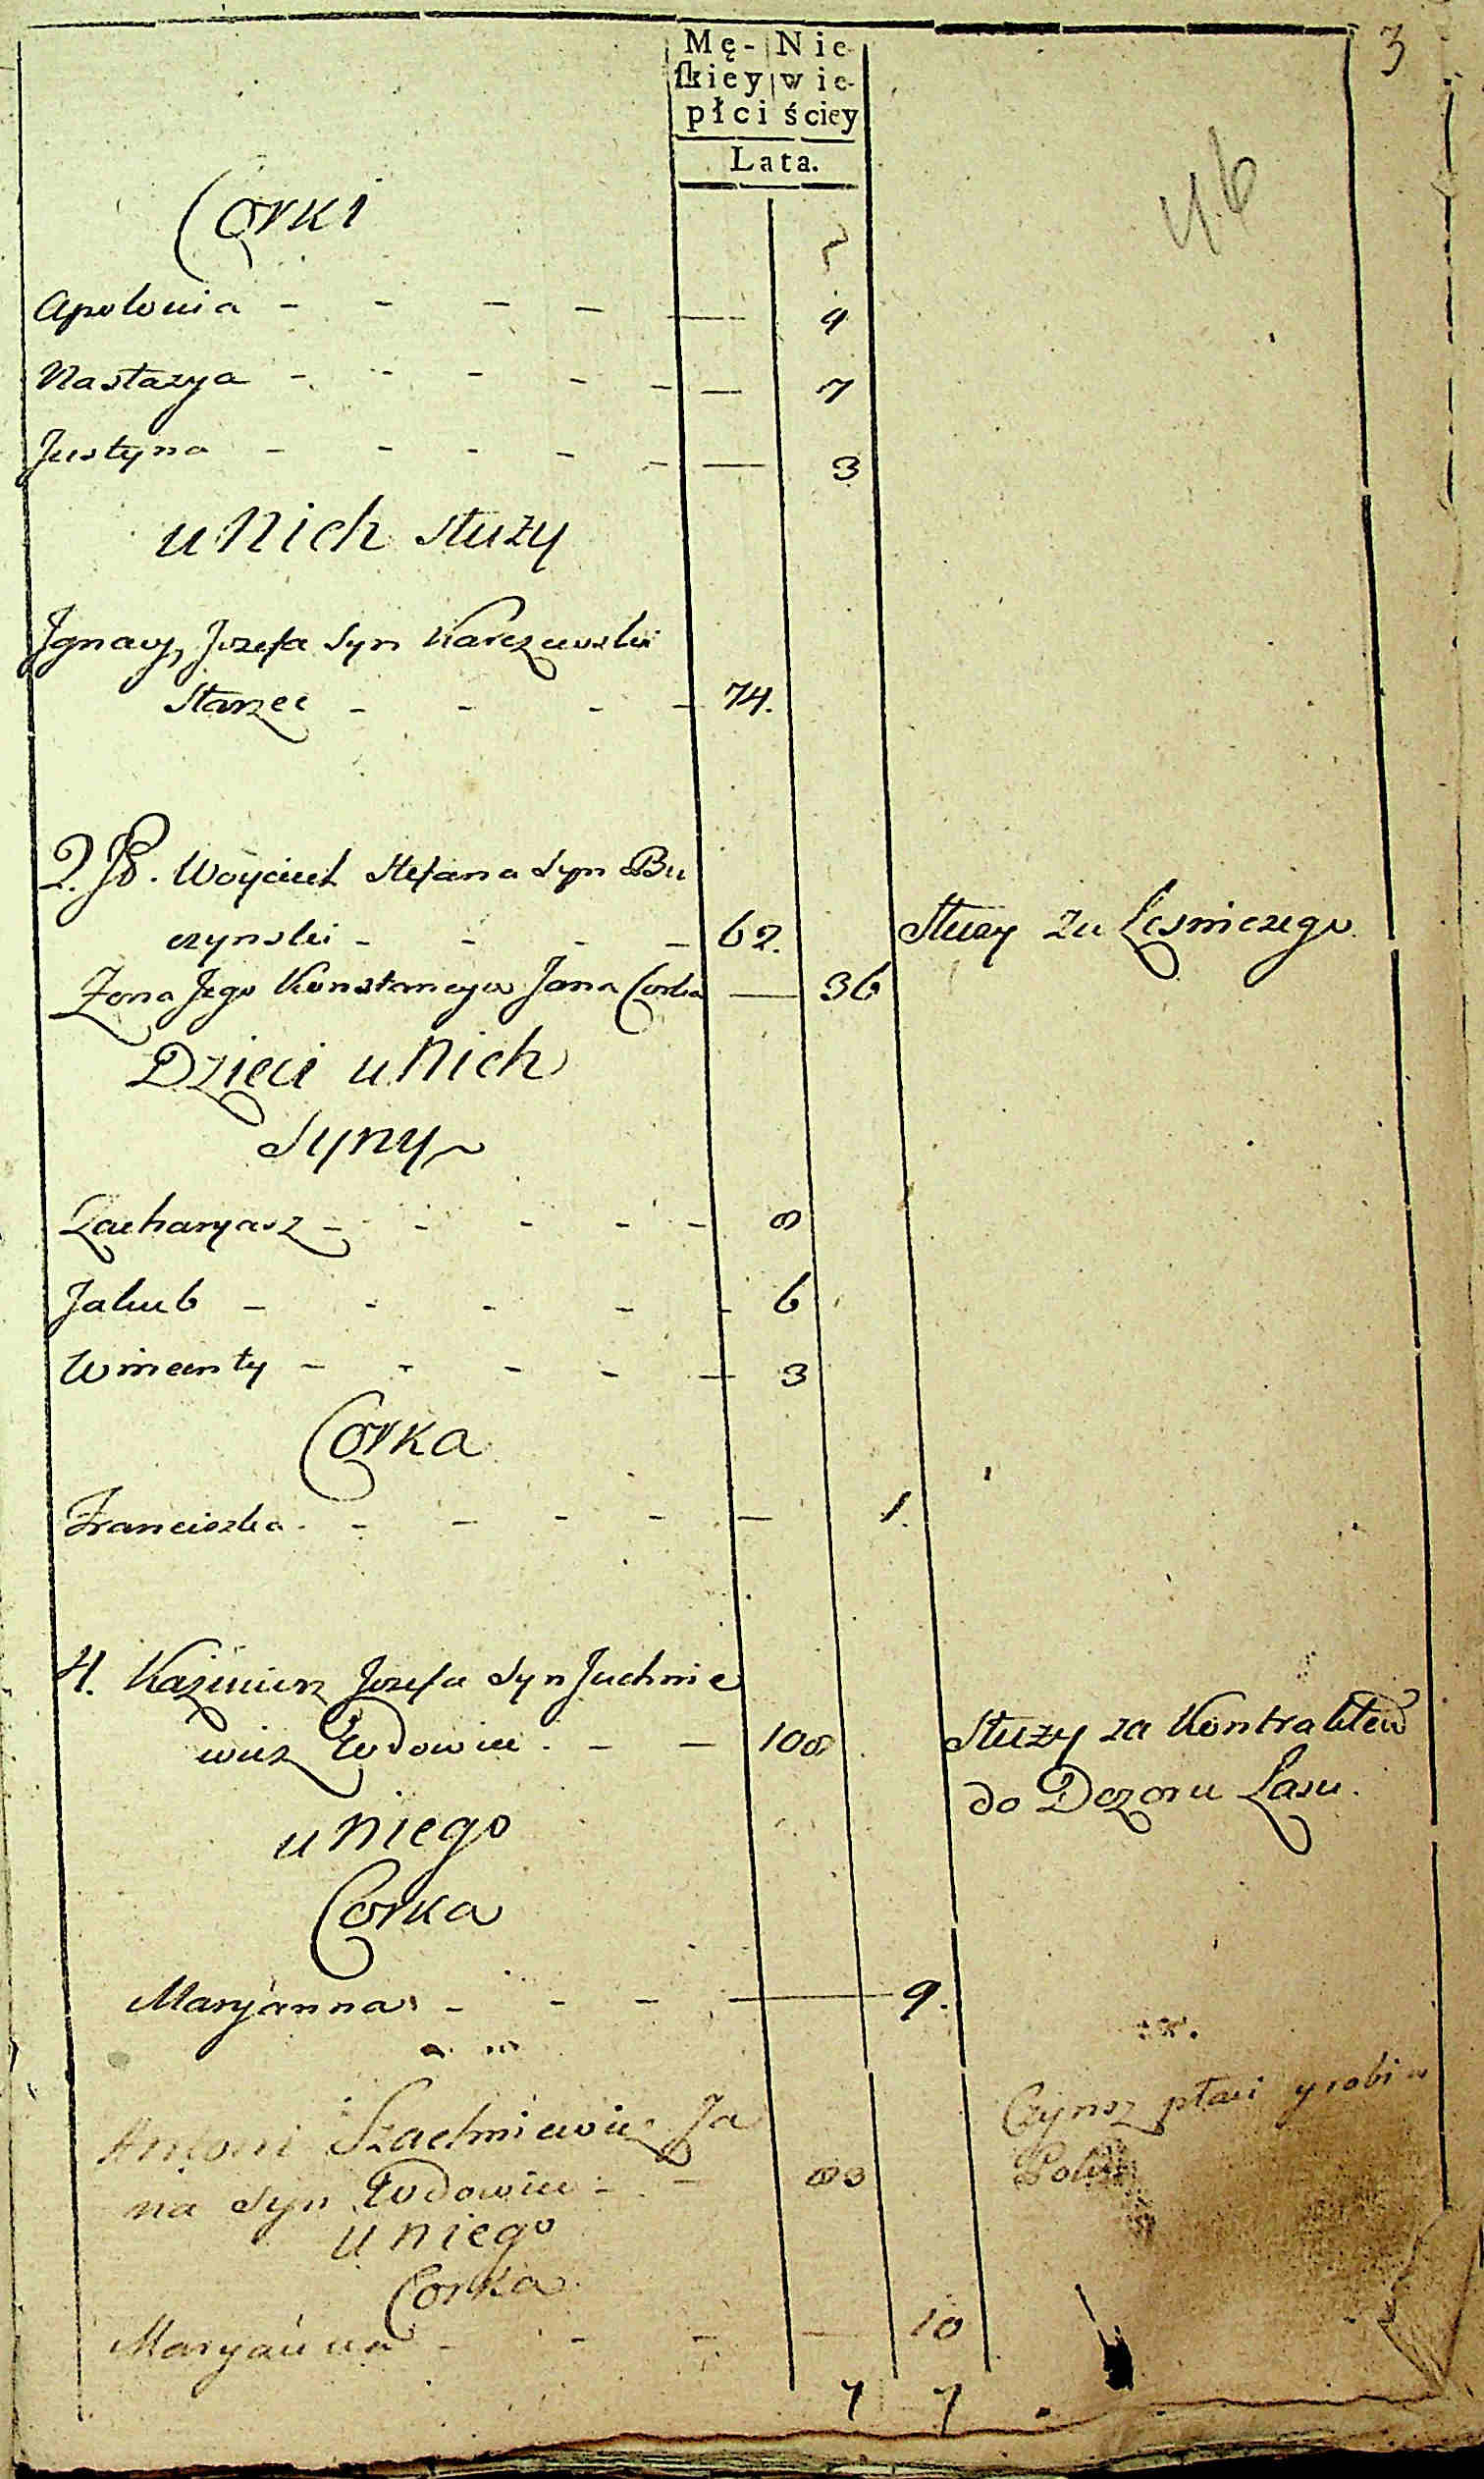 3
Mę- Nie-
ſkiey wie-
płci ściey
Lata.
46
Corki
Apolonia - - - - — 9
Nastazya - - - - - — 7
Justyna - - - - - — 3
u Nich służy
Ignacy, Jozefa Syn Karczewski
Starzec - - - - 74.
2. JP. Woyciech Stefana Syn Bu
czynski - - - - 62. Służy za Lesniczego
Żona Jego Konstancya Jana Corka — 36
Dzieci u Nich
Syny
Zacharyasz - - - - - 8
Jakub - - - - - 6
Wincenty - - - - - 3
Corka
Franciszka - - - - - — 1.
4. Kazimierz Jozefa Syn Juchnie
wicz Wdowiec - - 108 Służy za Kontraktem
do Dozoru Lasu.
u niego
Corka
Maryanna - - - — 9.
Antoni Szachniewicz Ja Czynsz płaci y robi w
na Syn Wdowiec - - 83
u niego
Corka
Maryanna - - - — 10
7 7